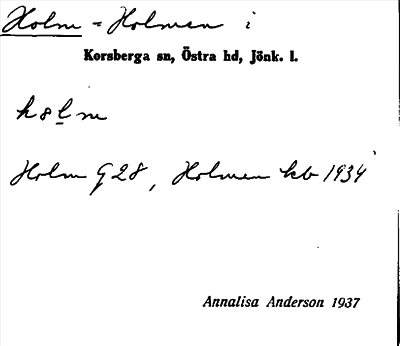 Holm = Holmen i
Korsberga sn, Östra hd, Jönk. l.
h8lm
Holm G28, Holmen kb 1934
Annalisa Anderson 1937